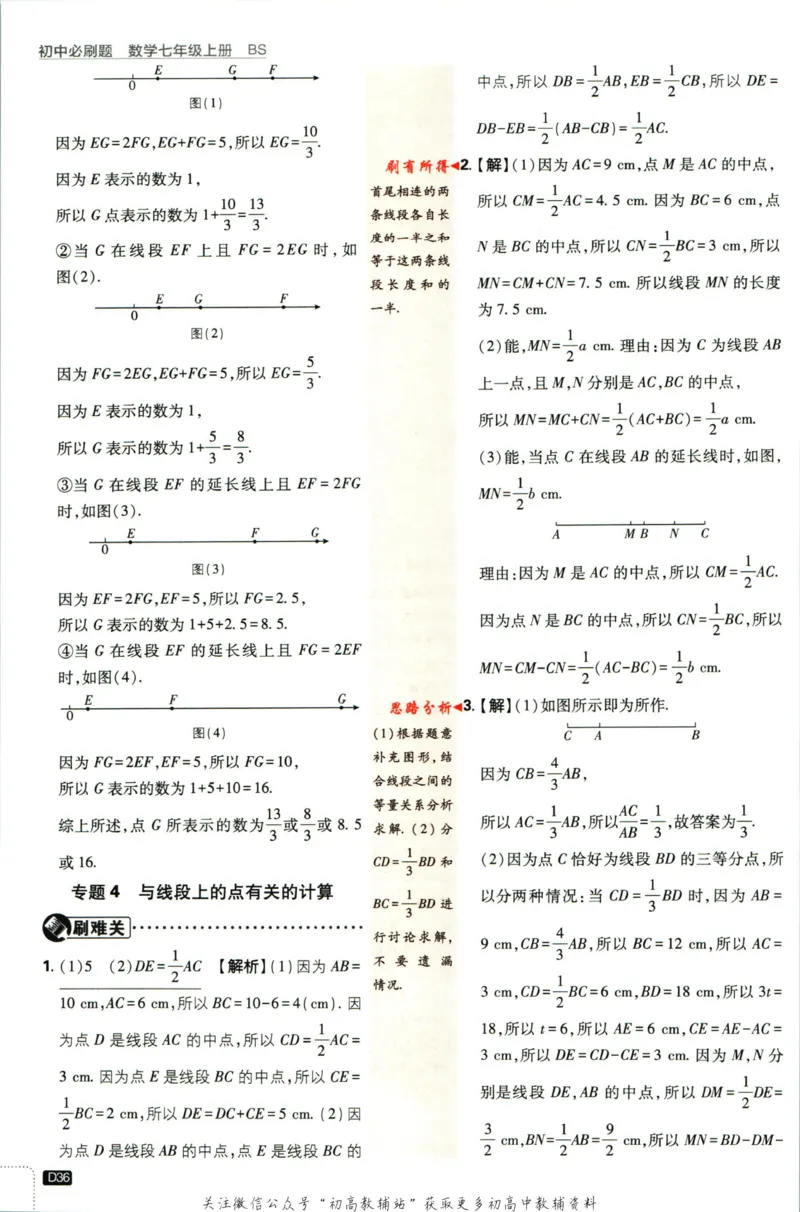 初中必刷题 数学七年级上册 BS
0 E G F
图(1)
因为 EG=2FG,EG+FG=5,所以 EG=10/3.
因为 E 表示的数为 1,
所以 G 点表示的数为 1+10/3=13/3.
②当 G 在线段 EF 上且 FG=2EG 时,如
图(2).
0 E G F
图(2)
因为 FG=2EG,EG+FG=5,所以 EG=5/3.
因为 E 表示的数为 1,
所以 G 表示的数为 1+5/3=8/3.
③当 G 在线段 EF 的延长线上且 EF=2FG
时,如图(3).
0 E F G
图(3)
因为 EF=2FG,EF=5,所以 FG=2.5,
所以 G 表示的数为 1+5+2.5=8.5.
④当 G 在线段 EF 的延长线上且 FG=2EF
时,如图(4).
0 E F G
图(4)
因为 FG=2EF,EF=5,所以 FG=10,
所以 G 表示的数为 1+5+10=16.
综上所述,点 G 所表示的数为13/3或8/3或 8.5
或 16.
专题 4 与线段上的点有关的计算
刷难关
1. (1)5 (2)DE=1/2AC 【解析】(1)因为 AB=
10 cm,AC=6 cm,所以 BC=10-6=4(cm). 因
为点 D 是线段 AC 的中点,所以 CD=1/2AC=
3 cm. 因为点 E 是线段 BC 的中点,所以 CE=
1/2BC=2 cm,所以 DE=DC+CE=5 cm. (2)因
为点 D 是线段 AB 的中点,点 E 是线段 BC 的
D36
刷有所得
首尾相连的两
条线段各自长
度的一半之和
等于这两条线
段长度和的
一半.
思路分析
(1)根据题意
补充图形,结
合线段之间的
等量关系分析
求解. (2)分
CD=1/3BD 和
BC=1/3BD 进
行讨论求解,
不要遗漏
情况.
中点,所以 DB=1/2AB,EB=1/2CB,所以 DE=
DB-EB=1/2(AB-CB)=1/2AC.
2. 【解】(1)因为 AC=9 cm,点 M 是 AC 的中点,
所以 CM=1/2AC=4.5 cm. 因为 BC=6 cm,点
N 是 BC 的中点,所以 CN=1/2BC=3 cm,所以
MN=CM+CN=7.5 cm. 所以线段 MN 的长度
为 7.5 cm.
(2)能,MN=1/2a cm. 理由:因为 C 为线段 AB
上一点,且 M,N 分别是 AC,BC 的中点,
所以 MN=MC+CN=1/2(AC+BC)=1/2a cm.
(3)能,当点 C 在线段 AB 的延长线时,如图,
MN=1/2b cm.
A M B N C
理由:因为 M 是 AC 的中点,所以 CM=1/2AC.
因为点 N 是 BC 的中点,所以 CN=1/2BC,所以
MN=CM-CN=1/2(AC-BC)=1/2b cm.
3. 【解】(1)如图所示即为所作.
C A B
因为 CB=4/3AB,
所以 AC=1/3AB,所以AC/AB=1/3,故答案为1/3.
(2)因为点 C 恰好为线段 BD 的三等分点,所
以分两种情况:当 CD=1/3BD 时,因为 AB=
9 cm,CB=4/3AB,所以 BC=12 cm,所以 AC=
3 cm,CD=1/2BC=6 cm,BD=18 cm,所以 3t=
18,所以 t=6,所以 AE=6 cm,CE=AE-AC=
3 cm,所以 DE=CD-CE=3 cm. 因为 M,N 分
别是线段 DE,AB 的中点,所以 DM=1/2DE=
3/2 cm,BN=1/2AB=9/2 cm,所以 MN=BD-DM-
关注微信公众号“初高教辅站”获取更多初高中教辅资料